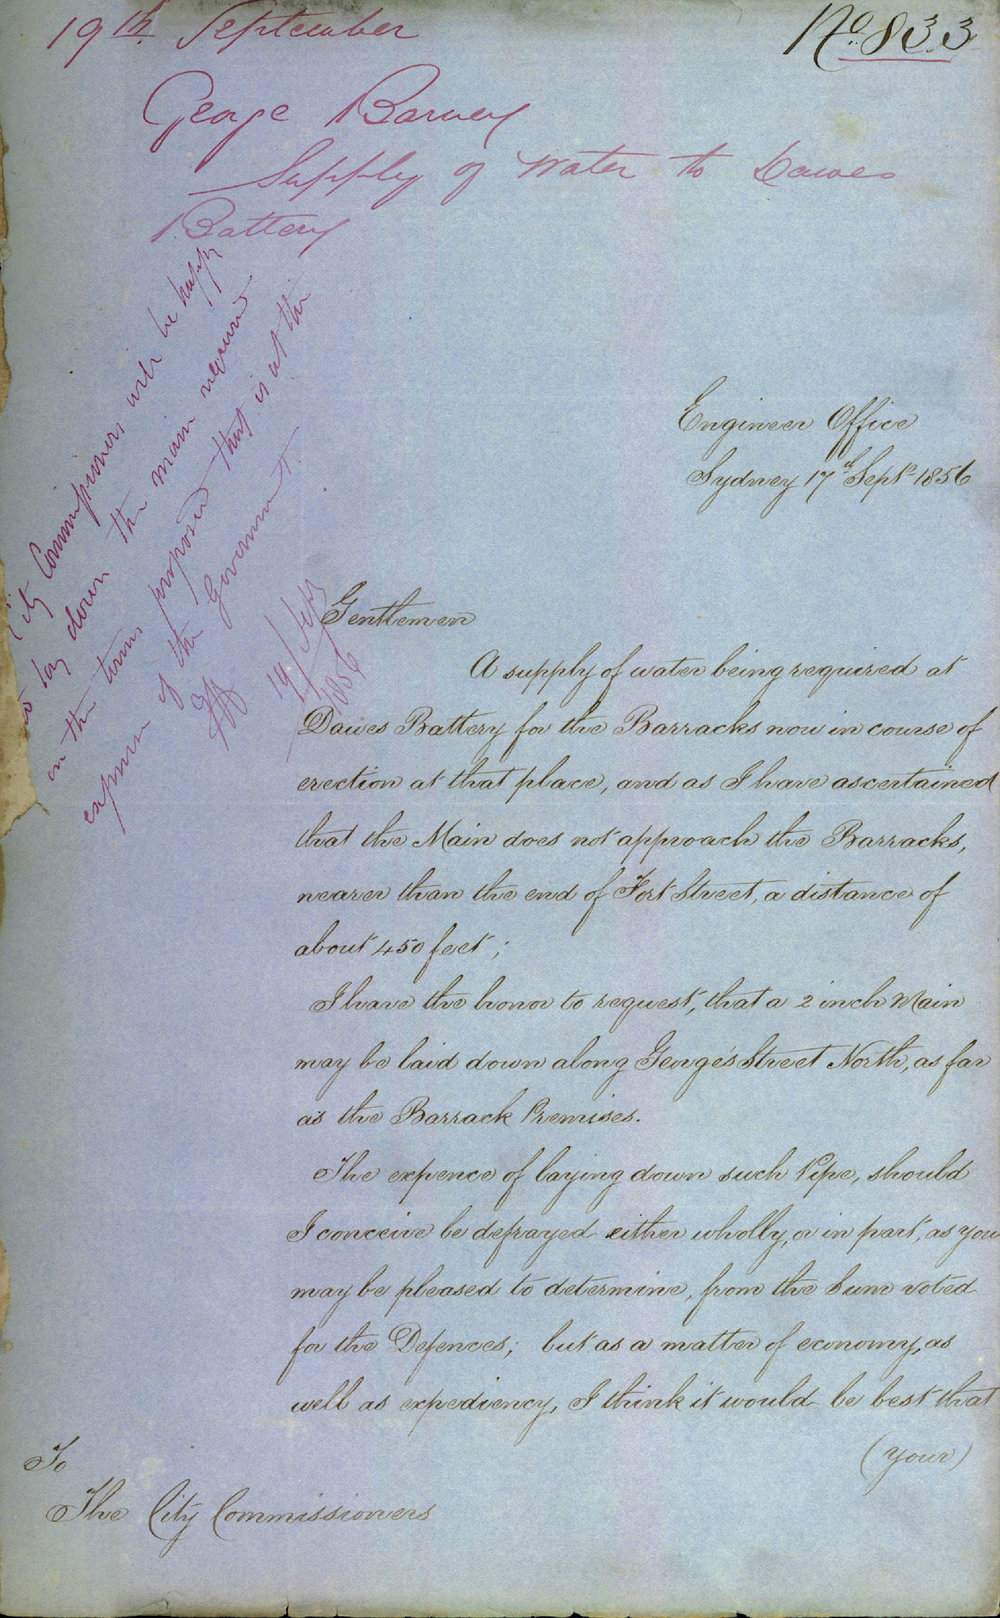 19th September
No. 833
George Barney
Supply of Water to Dawes
Battery
City Commissioners will be happy
to lay down the main required
on the terms proposed that is at the
expense of the Government.
19/Sept
1856
Engineer Office
Sydney 17th Sept. 1856
Gentlemen
A supply of water being required at
Dawes Battery for the Barracks now in course of
erection at that place, and as I have ascertained
that the Main does not approach the Barracks,
nearer than the end of Fort Street, a distance of
about 450 feet;
I have the honor to request, that a 2 inch Main
may be laid down along George's Street North, as far
as the Barrack Premises.
The expence of laying down such Pipe, should
I conceive be defrayed either wholly, or in part, as you
may be pleased to determine, from the Sum voted
for the Defences; but as a matter of economy, as
well as expediency, I think it would be best that
(your)
To
The City Commissioners